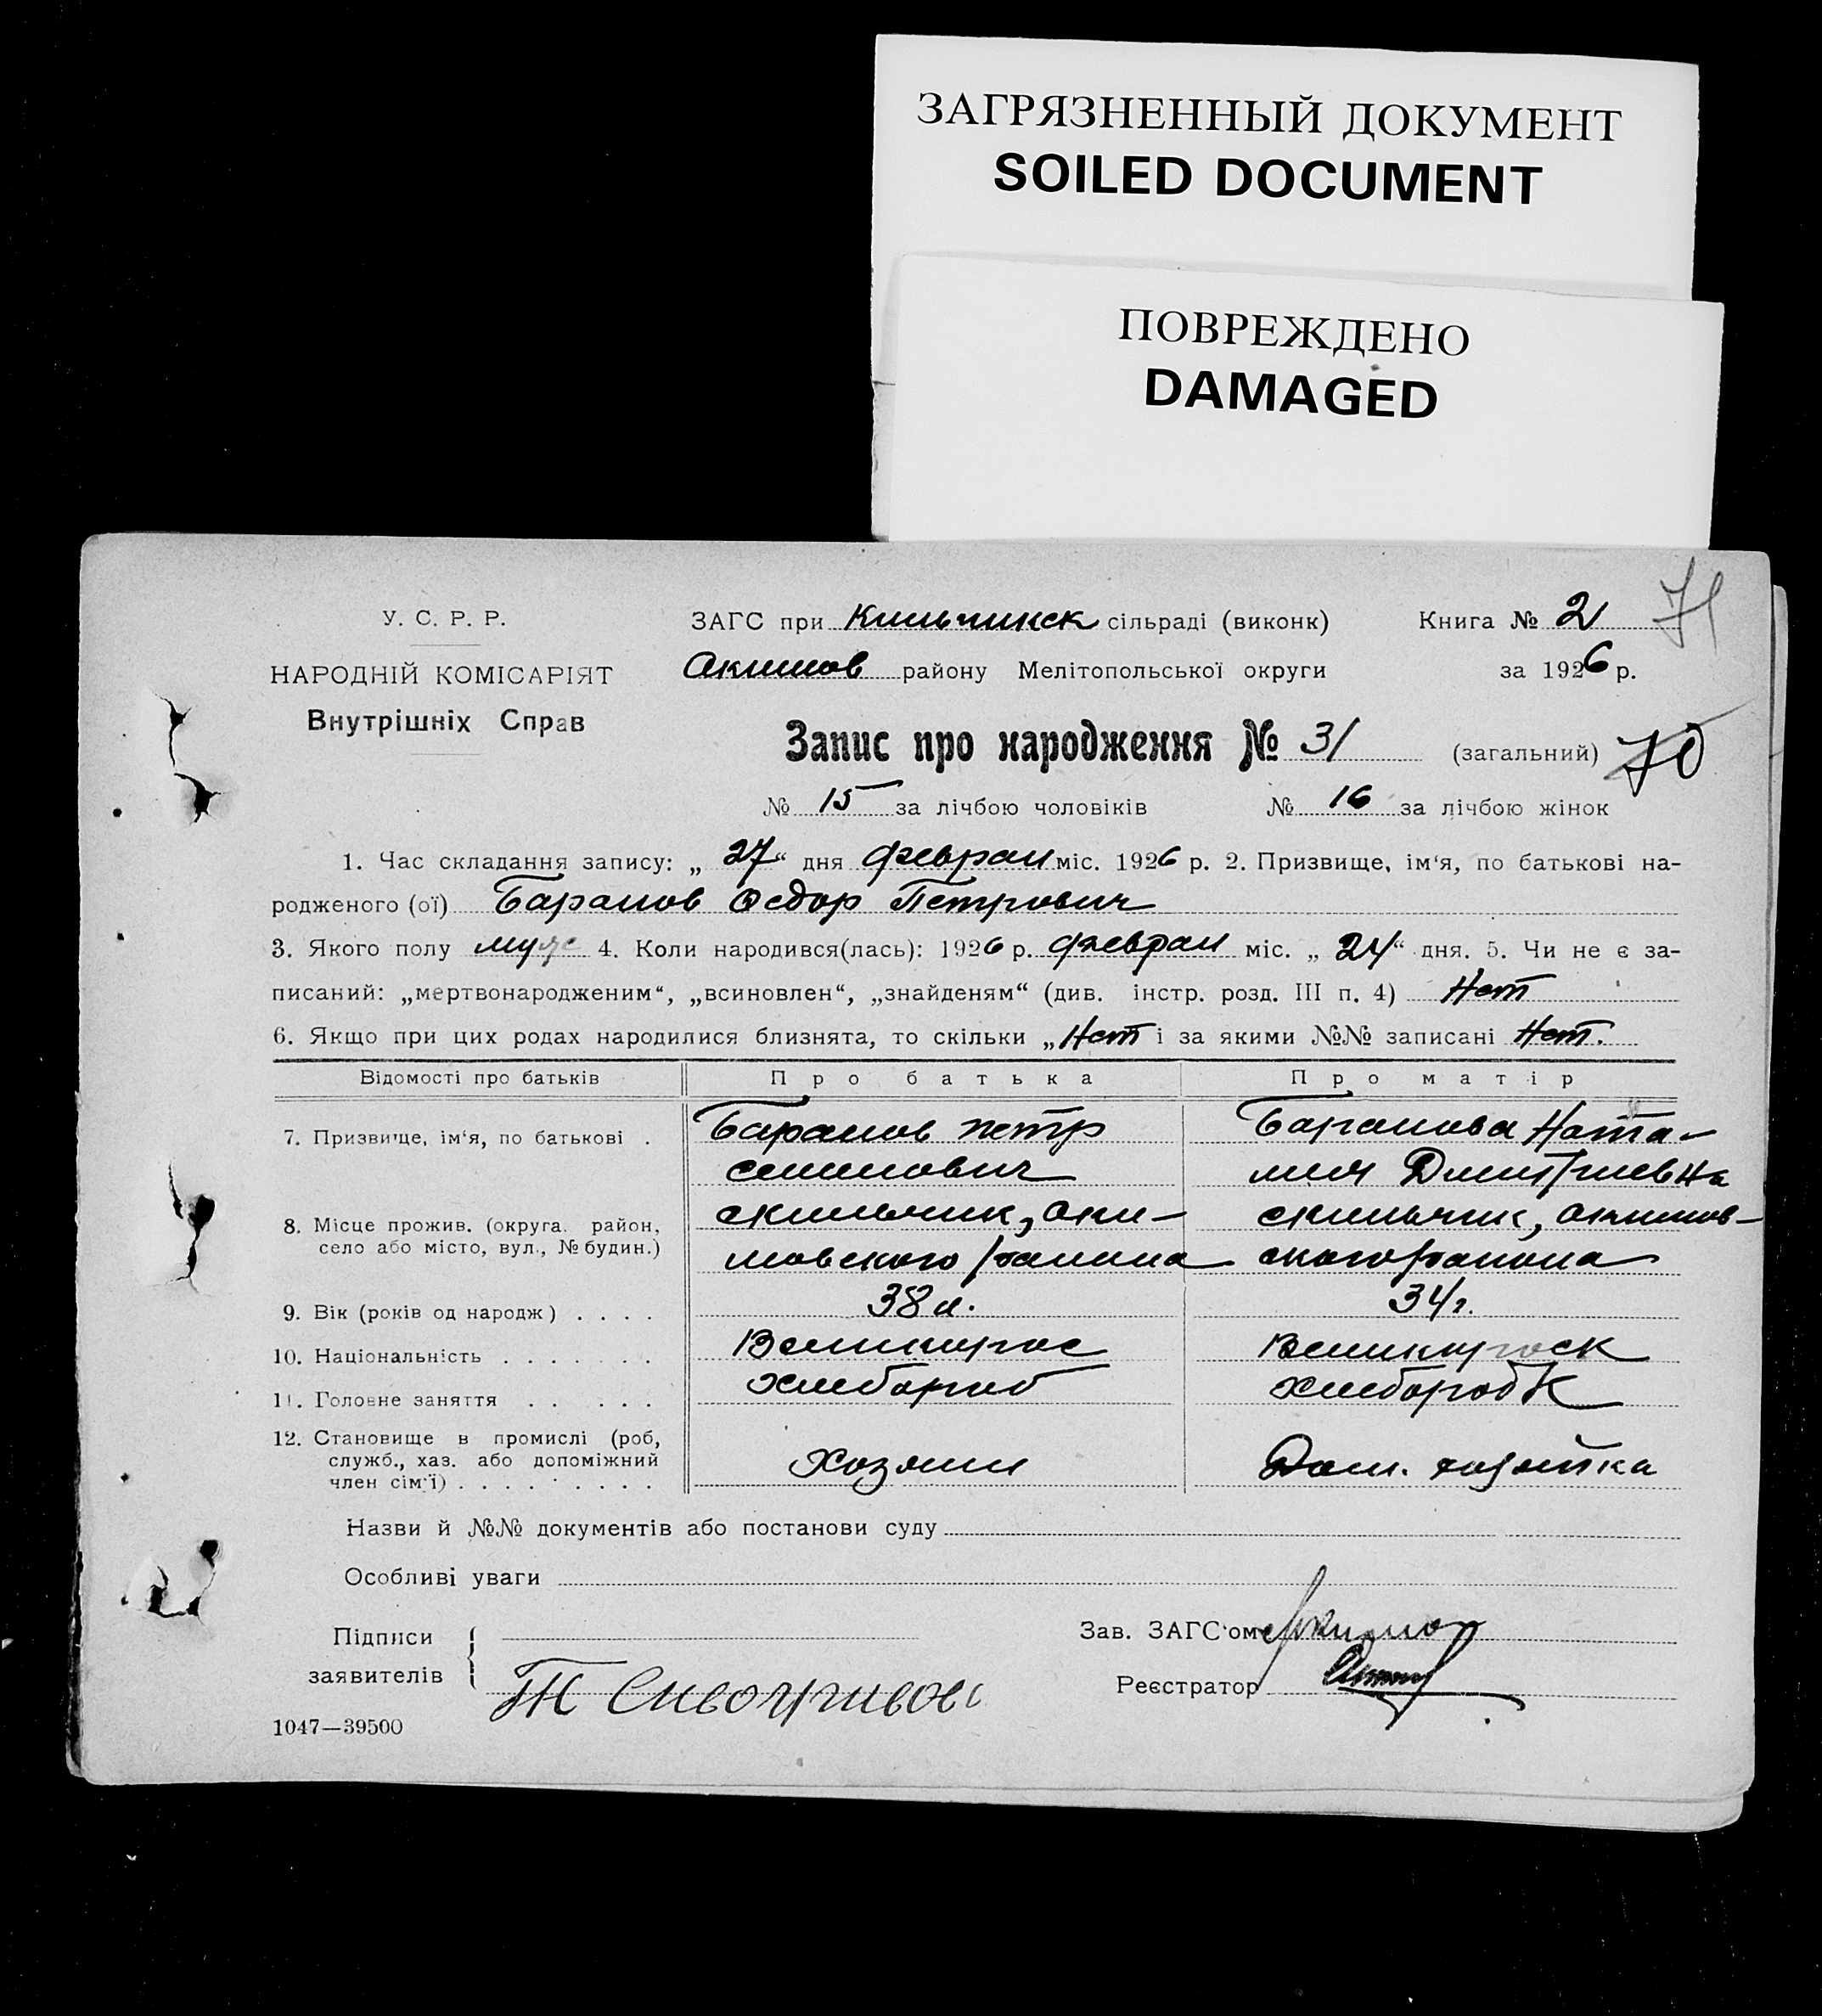 ЗАГРЯЗНЕННЫЙ ДОКУМЕНТ
SOILED DOCUMENT
ПОВРЕЖДЕНО
DAMAGED
71
У. С. Р. Р.
НАРОДНІЙ КОМІСАРІЯТ
Внутрішніх Справ
ЗАГС при Кильчинск сільраді (виконк) Книга № 2
Акимов району Мелітопольської округи за 1926 р.
Запис про народження № 31 (загальний) 70
№ 15 за лічбою чоловіків № 16 за лічбою жінок
1. Час складання запису: „ 27 “ дня феврал міс. 1926 р. 2. Призвище, ім‘я, по батькові на-
родженого (ої) Баранов Федор Петрович
3. Якого полу муж 4. Коли народився(лась): 1926 р. феврал міс. „ 24 “ дня. 5. Чи не є за-
писаний: „мертвонародженим“, „всиновлен“, „знайденям“ (див. інстр. розд. III п. 4) Нет
6. Якщо при цих родах народилися близнята, то скільки „ Нет і за якими №№ записані Нет.
Відомості про батьків Про батька Про матір
7. Призвище, ім‘я, по батькові . Баранов петр Баранова Ната-
семенович лия Дмитриевна
8. Місце прожив. (округа. район, скильчик, аки- скильчик, акимов-
село або місто, вул., № будин.) мовского района ского района
9. Вік (років од народж) . . . . 38 л. 34 г.
10. Національність . . . . . . . Великорос Великороск
11. Головне заняття . . . . . хлебороб хлеборобк
12. Становище в промислі (роб,
служб., хаз. або допоміжний Хозяин Дом. хозяйка
член сім‘ї) . . . . . . . . .
Назви й №№ документів або постанови суду
Особливі уваги
Підписи
заявителів
Зав. ЗАГС‘ом
Реєстратор
1047—39500